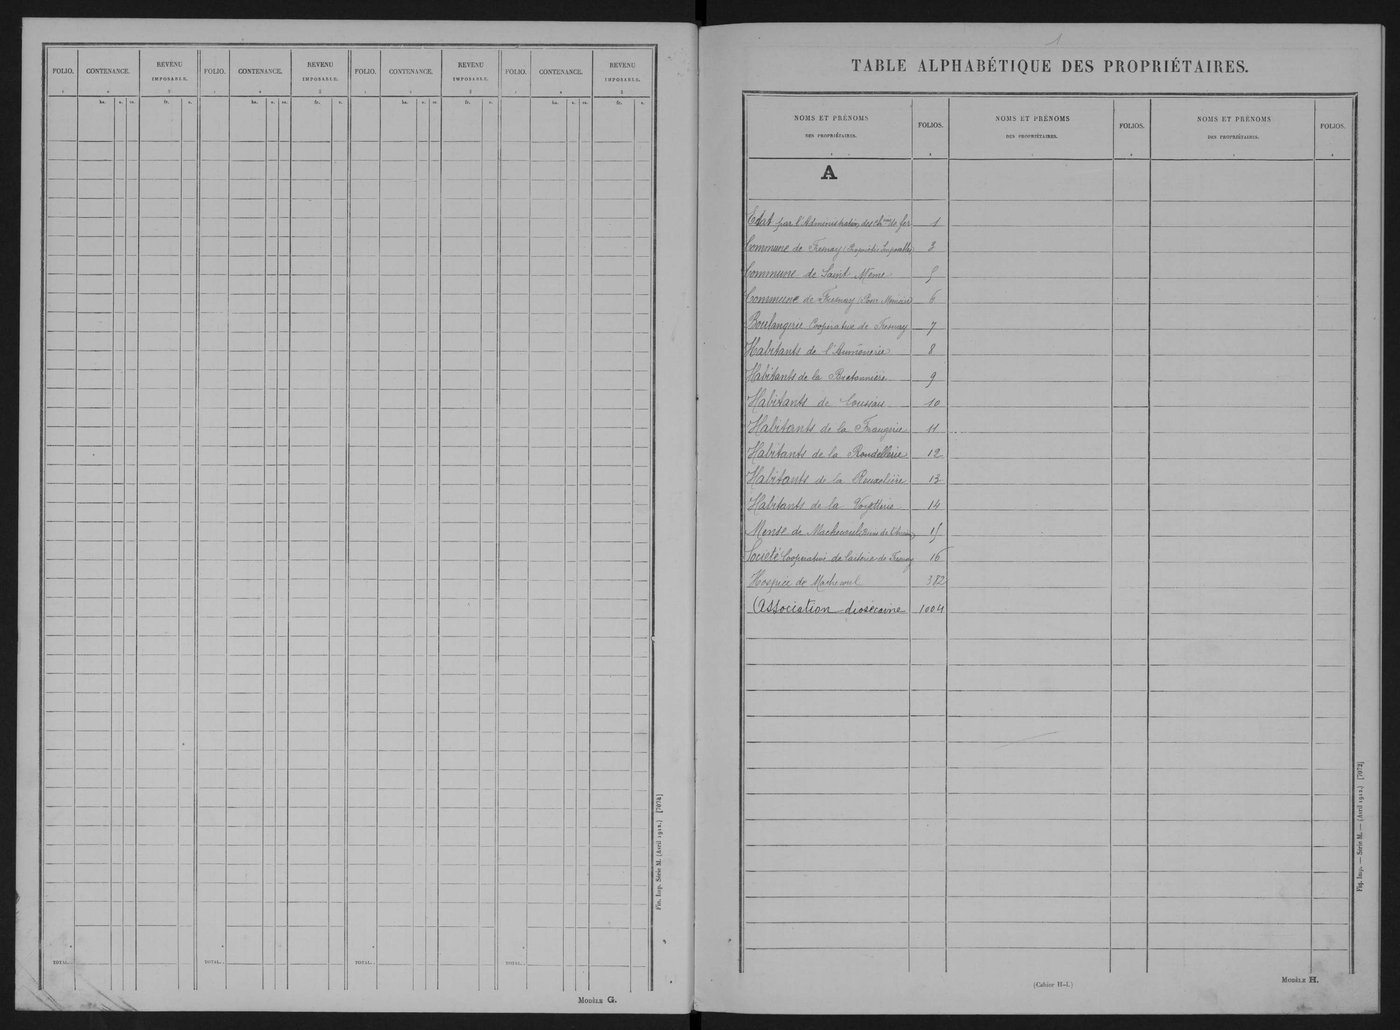 FOLIO. CONTENANCE. REVENU IMPOSABLE. FOLIO. CONTENANCE. REVENU IMPOSABLE. FOLIO. CONTENANCE. REVENU IMPOSABLE. FOLIO. CONTENANCE. REVENU IMPOSABLE.
ha. a. ca. fr. c. ha. a. ca. fr. c. ha. a. ca. fr. c. ha. a. ca. fr. c.
TOTAL. TOTAL. TOTAL. TOTAL.
Fin. Imp. Série M. (Avril 1912.) [7072]
MODÈLE G.
1
TABLE ALPHABÉTIQUE DES PROPRIÉTAIRES.
NOMS ET PRÉNOMS DES PROPRIÉTAIRES. FOLIOS. NOMS ET PRÉNOMS DES PROPRIÉTAIRES. FOLIOS. NOMS ET PRÉNOMS DES PROPRIÉTAIRES. FOLIOS.
A
Etat par l'Administration des Ch.mins de fer 1
Commune de Fresnay (Propriétés Imposables) 3
Commune de Saint Même 5
Commune de Fresnay (Pour Mémoire) 6
Boulangerie Coopérative de Fresnay 7
Habitants de l'Aumônerie 8
Habitants de la Bretonnière 9
Habitants de 10
Habitants de la Frangerie 11
Habitants de la Rondellerie 12
Habitants de la 13
Habitants de la 14
Mense de Machecoul 15
Société Coopérative de laiterie de Fresnay 16
Hospice de Machecoul 382
Association diosécaine 1004
Fin. Imp. — Série M. — (Avril 1912.) [7072]
(Cahier H-1.)
MODÈLE H.